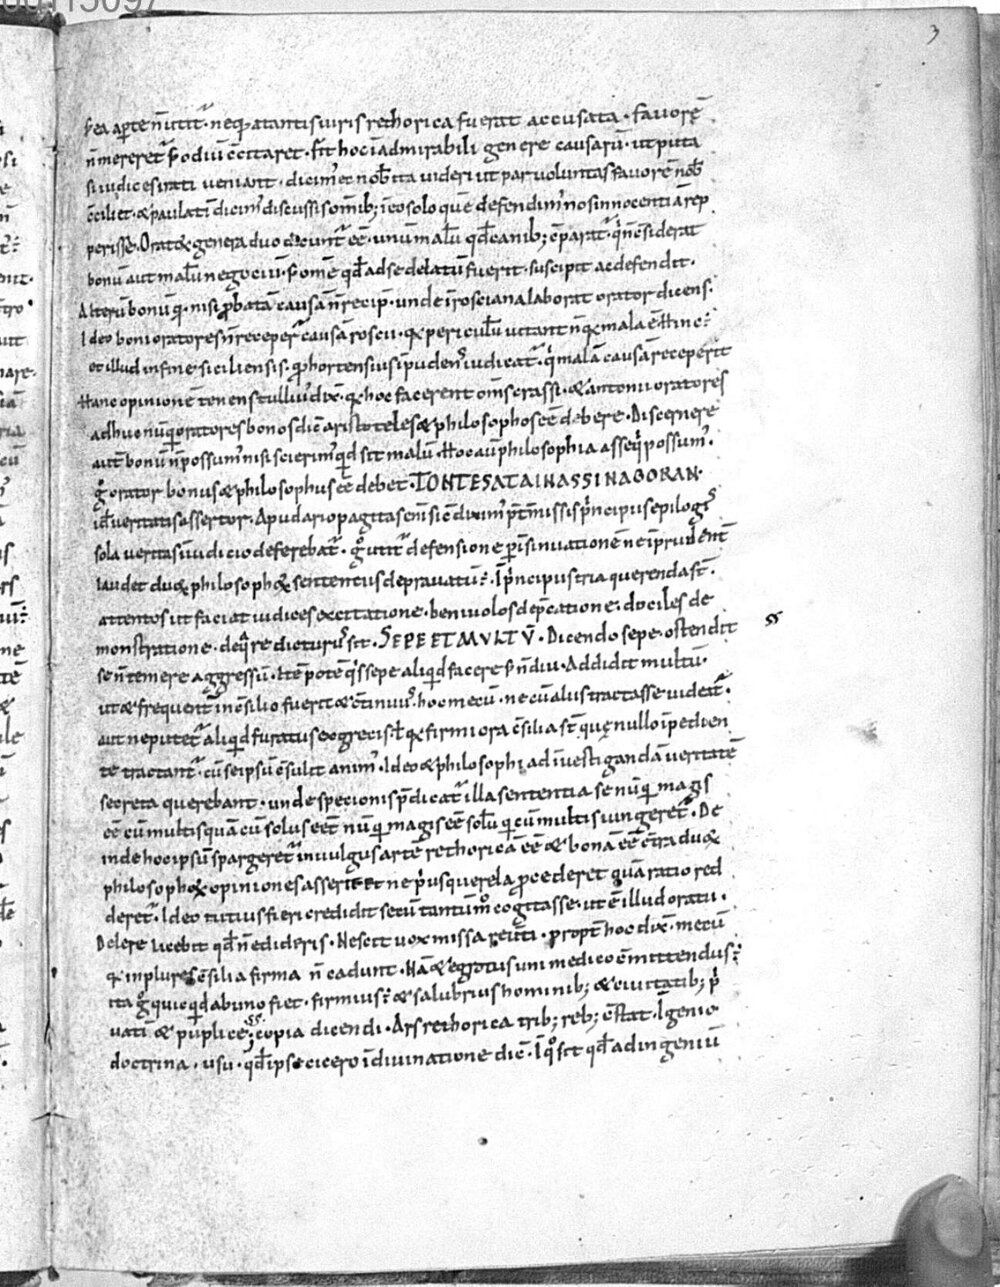 3
rea aperte n̄ utit̄ neq; a tantis uiris rethorica fuerat accusata · fauorē
n̄ mereret̄ odiū c̄citaret · fit hoc ī admirabili genere causarū · ut puta
si iudices irati ueniant · dicim̄ et nob̄ ita uideri ut par uoluntas fauorē nob̄
c̄ciliet · & paulatī dicim̄ discussis omīb; ī eo solo quē defendim̄ nos innocentiā rep
perisse · Orat& genera duo dicunt̄ eē · unū malū qd̄ canib; c̄parat̄ · q̄ n̄ c̄siderat
bonū aut malū negociū · s; om̄e qd̄ ad se delatū fuerit · suscipit ac defendit ·
Alterū bonū q̄ · nisi p̄batā causā n̄ recip̄ · unde ī rosciana laborat orator dicens ·
Ideo boni oratores n̄ receper̄ causā roscii · q; periculū uitant n̄ q; mala ē · Hinc ē
et illud in fine siciliensis · q; hortensius īpudent̄ iudicat̄ · q̄ malā causā receperit
Hanc opinionē tenens tullius dix̄ · q; hoc facerent om̄s crassi · & antonii oratores
adhuc nūq̄ oratores bonos dic̄ aristoteles & philosophos eē debere · Discernere
aut bonū n̄ possum̄ nisi scierim̄ qd̄ sit malū · Hoc aū philosophia asseq̄ possum̄ ·
ḡ orator bonus & philosophus eē debet ·
id̄ ueritatis assertor · Apud ariopagitas eni̅ sic̄ dixim̄ p̄t̄missis p̄ncipiis epilogis
sola ueritas ī iudicio deferebat̄ · ḡ utit̄ defensione p̄ īsinuationē ne īprudent̄
laudet duo& philosopho& sententiis deprauatū · Ī p̄ncipiis tria querenda st̄ ·
attentos ut faciat iudices excitatione · beniuolos dep̄catione · dociles de
monstratione · de q̄ re dicturus sit · SEPE ET MULTŪ · Dicendo sepe · ostendit
se n̄ temere aggressū · Itē potē q̄s sepe aliqd̄ facere s; n̄ diu · Addidit multū ·
ut & frequent̄ in c̄silio fuerit & c̄tinuus · hoc mecū · ne cū aliis tractasse uideat̄ ·
aut ne putet̄ aliqd̄ furatus e grecis · ł q; firmiora c̄silia st̄ quę nullo īpedien
te tractant̄ · cū se ipsū c̄sulit anim̄ · Ideo & philosophi ad īuestigandā ueritatē
secreta querebant · unde specionis p̄dicat̄ illa sententia se nūq̄ magis
eē cū multis quā cū solus eēt nūq̄ magis eē solū q̄ cū multis iungeret̄ · De
inde hoc ipsū spargeret̄ in uulgus artē rethoricā eē & bonā eē c̄tra duo&
philosopho& opiniones asserit Et ne p̄us querela p̄cederet quā ratio red
deret̄ · Ideo tutius fieri credidit secū tantūm̄ cogitasse · ut ē illud oratii ·
Delere licebit qd̄ n̄ edideris · Nescit uox missa reuerti · propt̄ hoc dix̄ · mecū
q; in plures c̄silia firma n̄ cadunt · Nā & egrotus uni medico c̄mittendus ē
ita ḡ quicqd̄ ab uno fiet · firmius ē & salubrius hominib; & ciuitatib; p̄
uatī & puplice copia dicendi · Ars rethorica trib; reb; c̄stat · Ingenio
doctrina · usu · qd̄ ipse cicero ī diuinatione dic̄ · Iq̄ sit qd̄ ad ingeniū